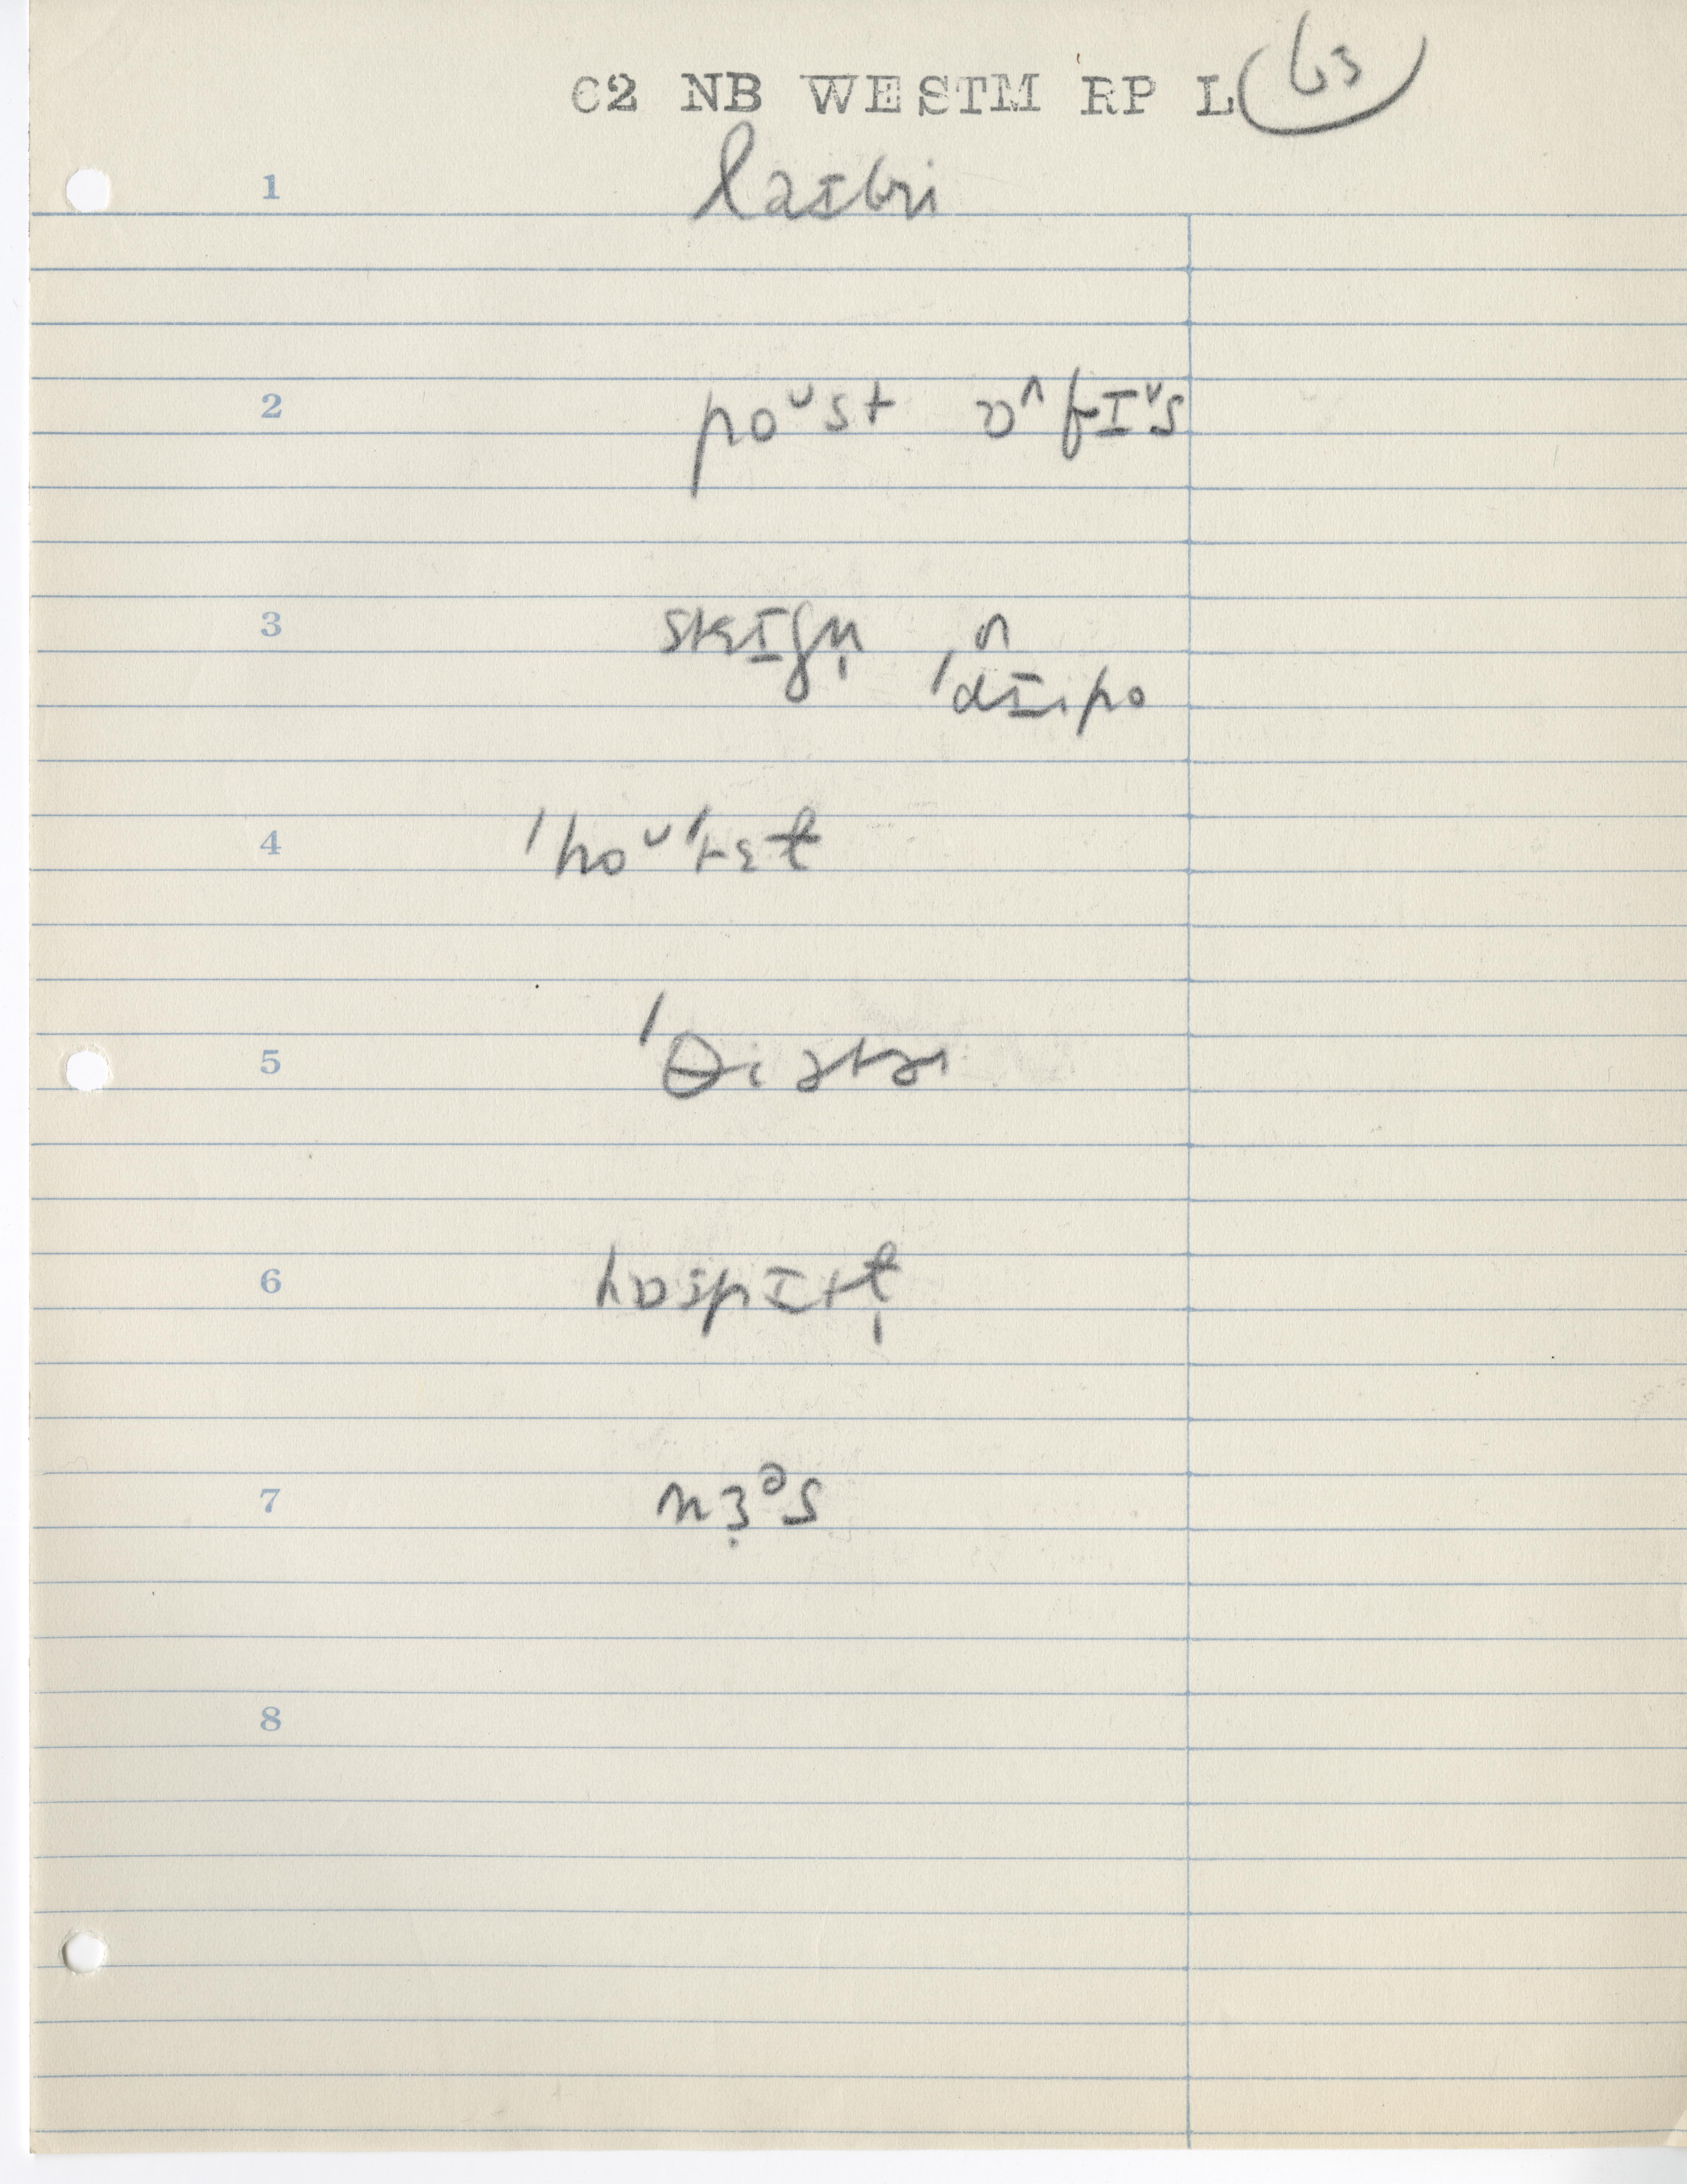 C2 NB WESTM RP L 63
1 laɪbri
2 poᵕst ɒ^fɪˇs
3 steɪʃn̩
ˈdɪˑpo
4 ˈhoᵕˈtɛɫ
5 ˈθiətəɹ
6 hɒspɪtɫ̩
7 nɜ̣ᵊs
8